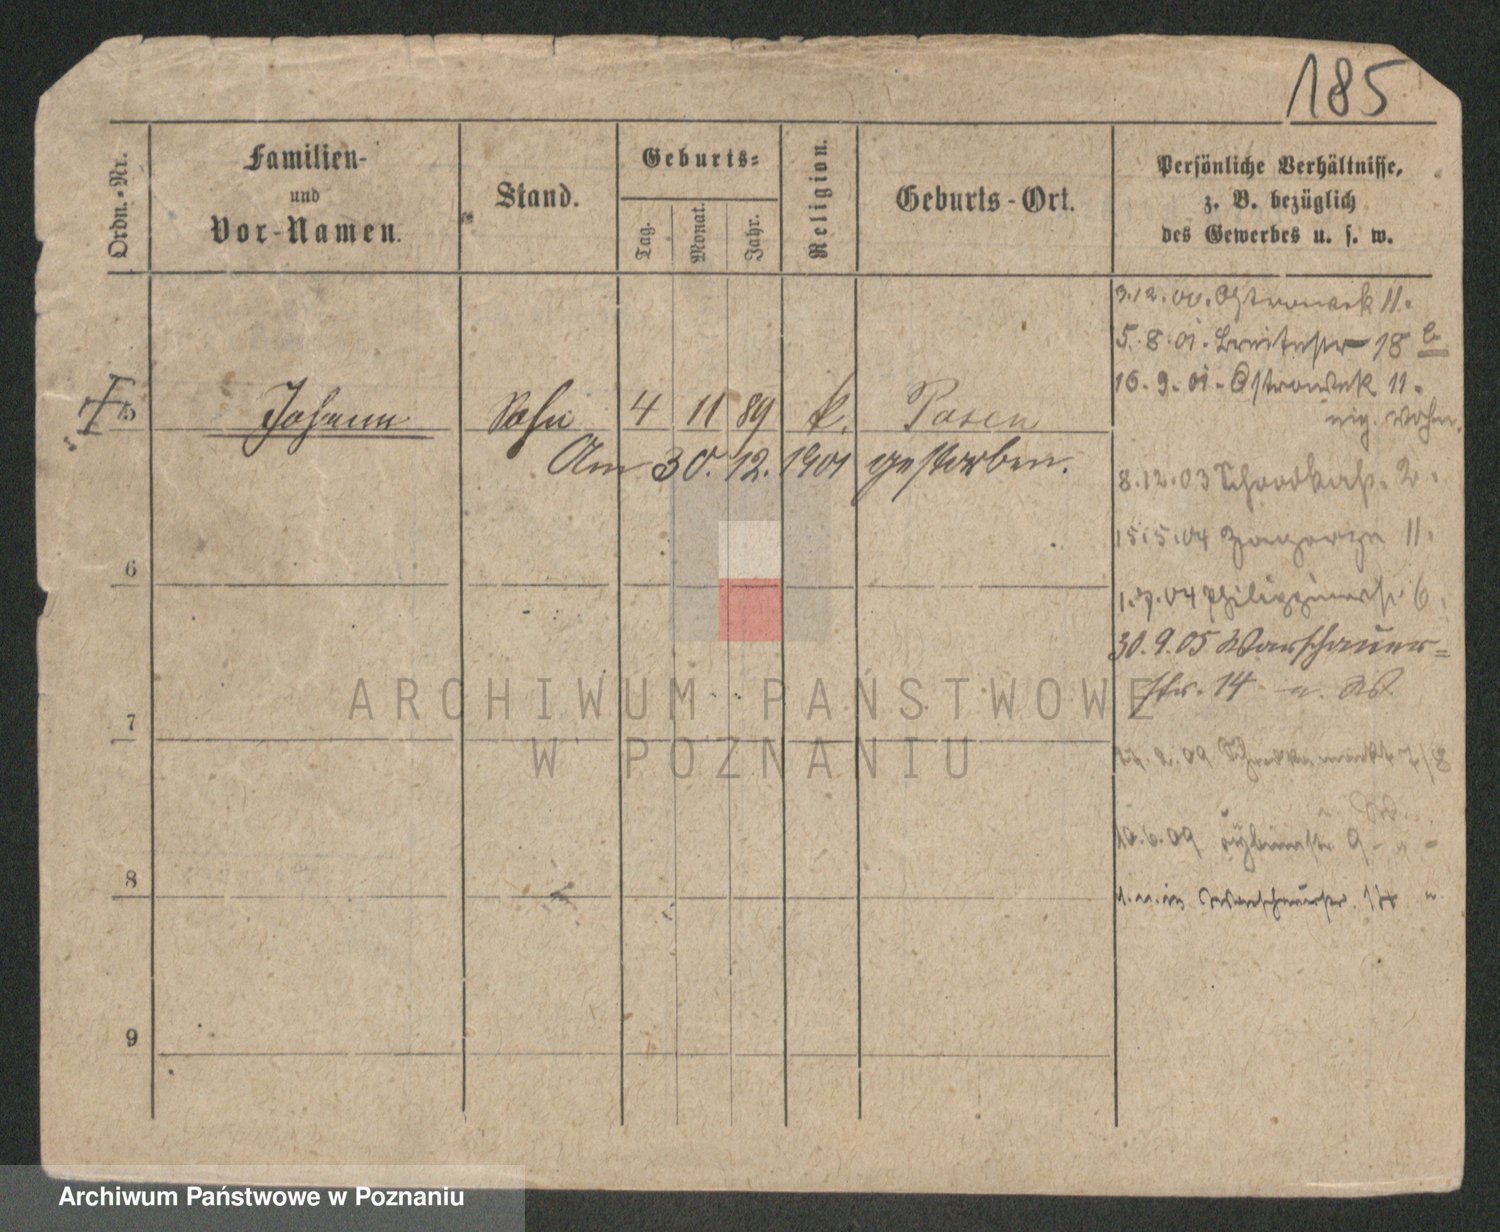 185
Ordn.-Nr.
Familien-
und
Vor-Namen.
Stand.
Geburts-
Tag.
Monat.
Jahr.
Religion.
Geburts-Ort.
Persönliche Verhältnisse,
z. B. bezüglich
des Gewerbes u. s. w.
3.12.00. Ostrowek 11.
5.8.01. Breitestr 18 b
16.9.01. Ostrowek 11.
5 Johann Sohn 4 11 89 k. Posen
Am 30.12.1901 gestorben.
8.12.03 2.
15.5.04 Zagorze 11.
6
1.7.04 6
30.9.05 Warschauer-
str. 14
7
09 7/8
10.6.09 9
8
Warschauerstr.
9
ARCHIWUM PAŃSTWOWE
W POZNANIU
Archiwum Państwowe w Poznaniu